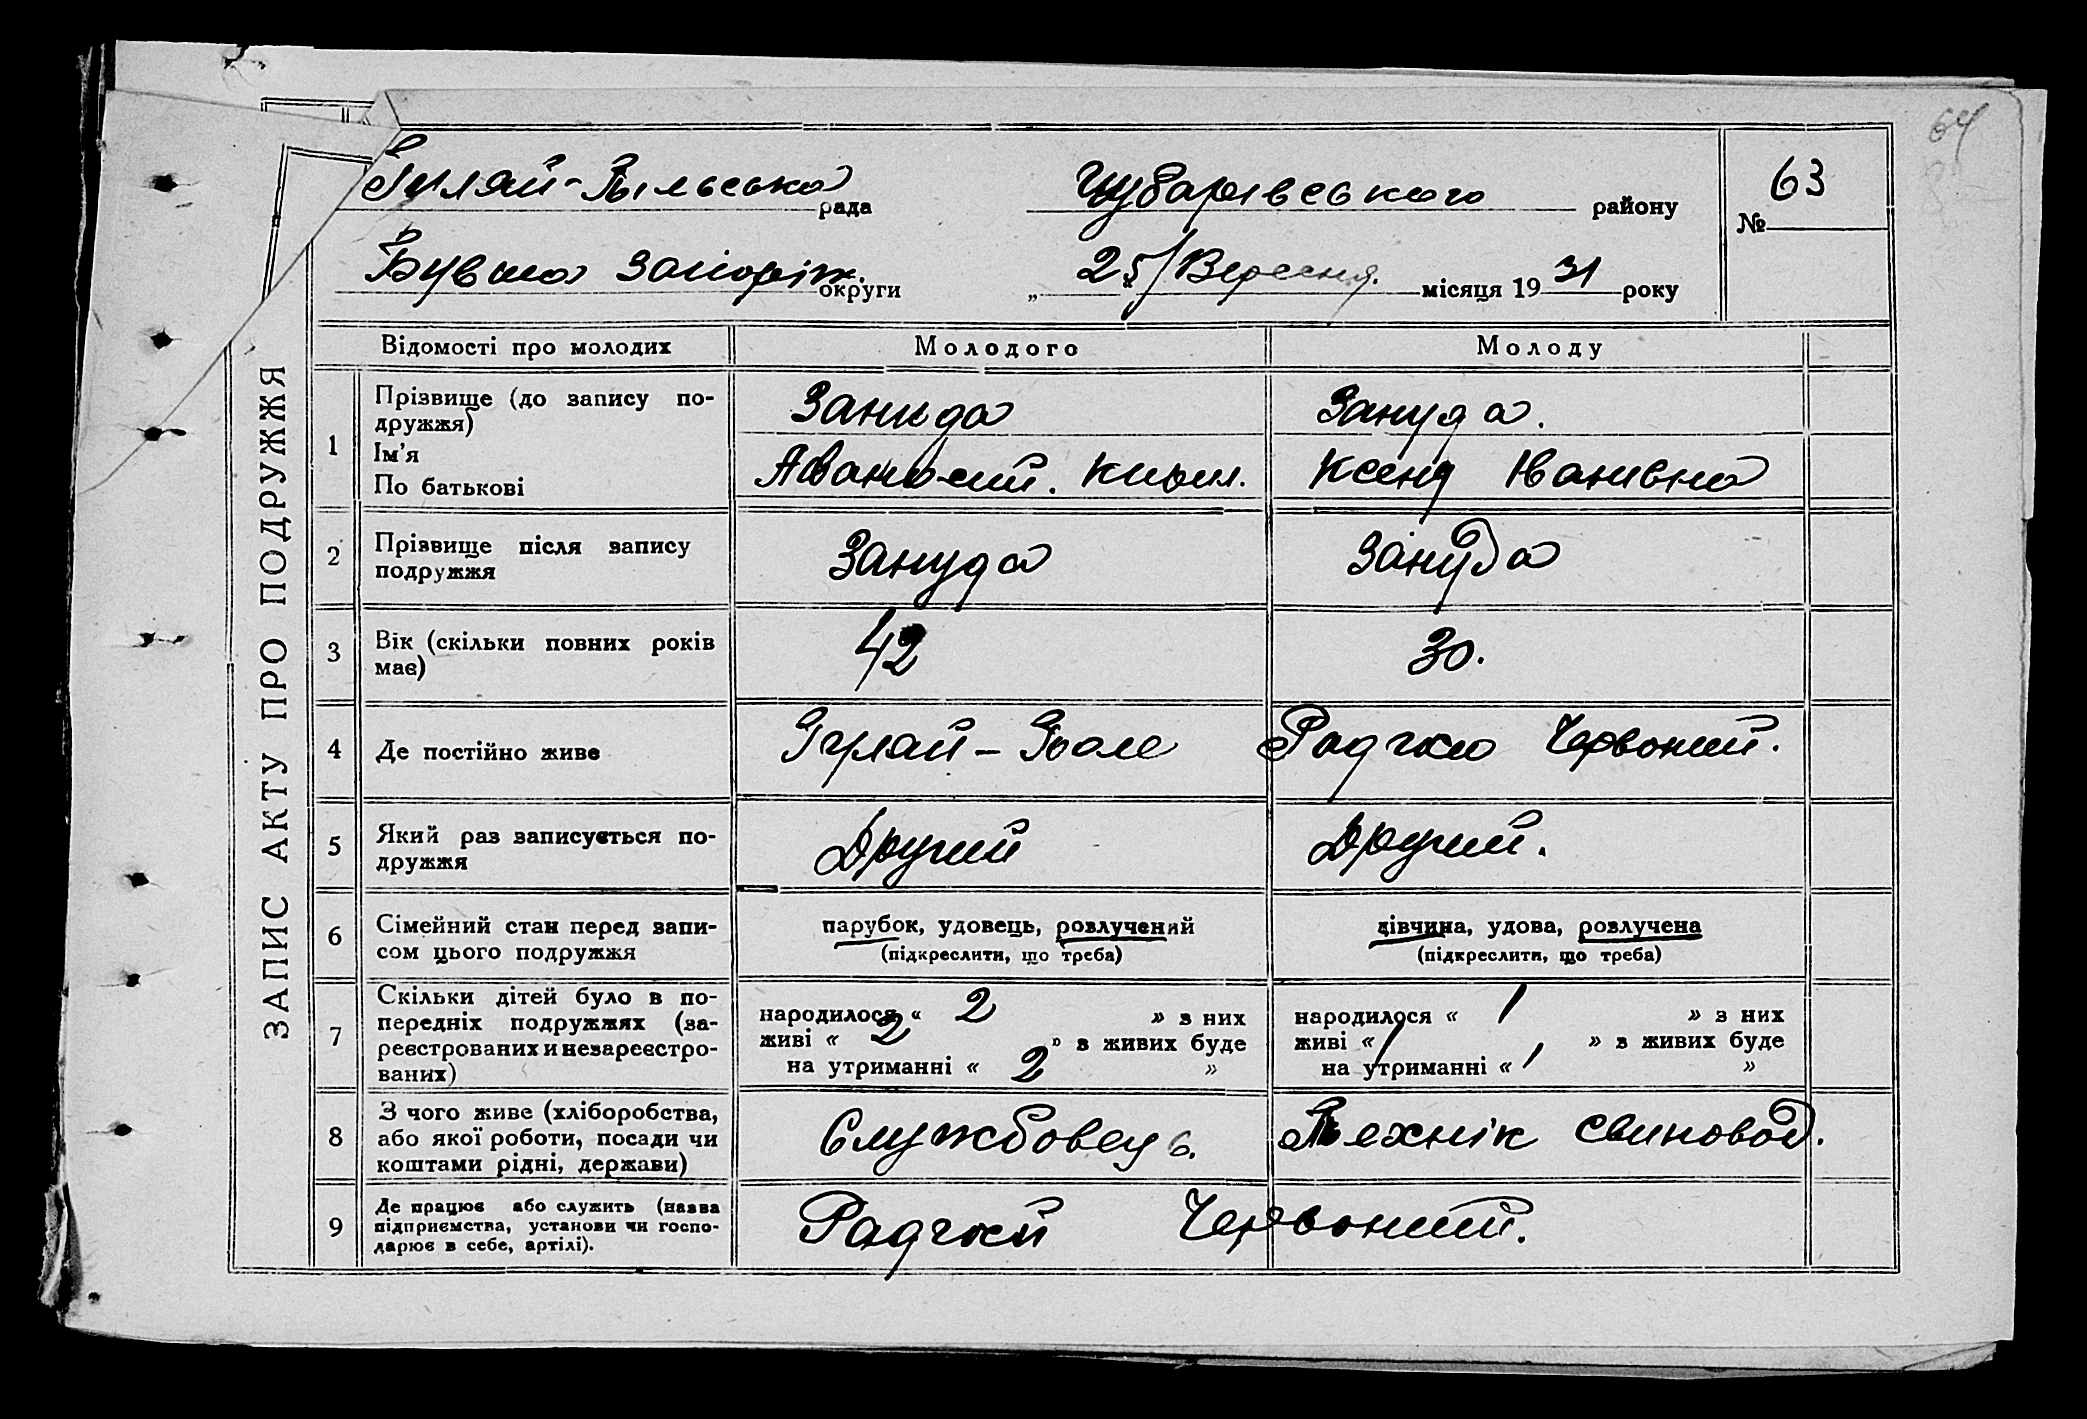 64
Гуляй-Пільська рада Чубарівського району № 63
Бувша Запоріж. округи „ 25/Вересня. місяця 19 31 року
ЗАПИС АКТУ ПРО ПОДРУЖЖЯ
Відомості про молодих Молодого Молоду
1 Прізвище (до запису по-
дружжя) Занида Зануда.
Ім'я
По батькові Афанасий. Кирил. Ксеня Иванивна
2 Прізвище після запису
подружжя Зануда Зануда
3 Вік (скільки повних років
має) 42 30.
4 Де постійно живе Гуляй-Поле Радгосп Червоний.
5 Який раз записується по-
дружжя Другий Другий.
6 Сімейний стан перед запи-
сом цього подружжя парубок, удовець, розлучений дівчина, удова, розлучена
(підкреслити, що треба) (підкреслити, що треба)
7 Скільки дітей було в по-
передніх подружжях (за-
реєстрованих и незареєстро-
ваних) народилося « 2 » з них народилося « 1 » з них
живі « 2 » з живих буде живі « 1 » з живих буде
на утриманні « 2 » на утриманні « 1 »
8 З чого живе (хліборобства,
або якої роботи, посади чи
коштами рідні, держави) Службовець. Технік свиновод.
9 Де працює або служить (назва
підприємства, установи чи госпо-
дарює в себе, артілі). Радгосп Червоний.